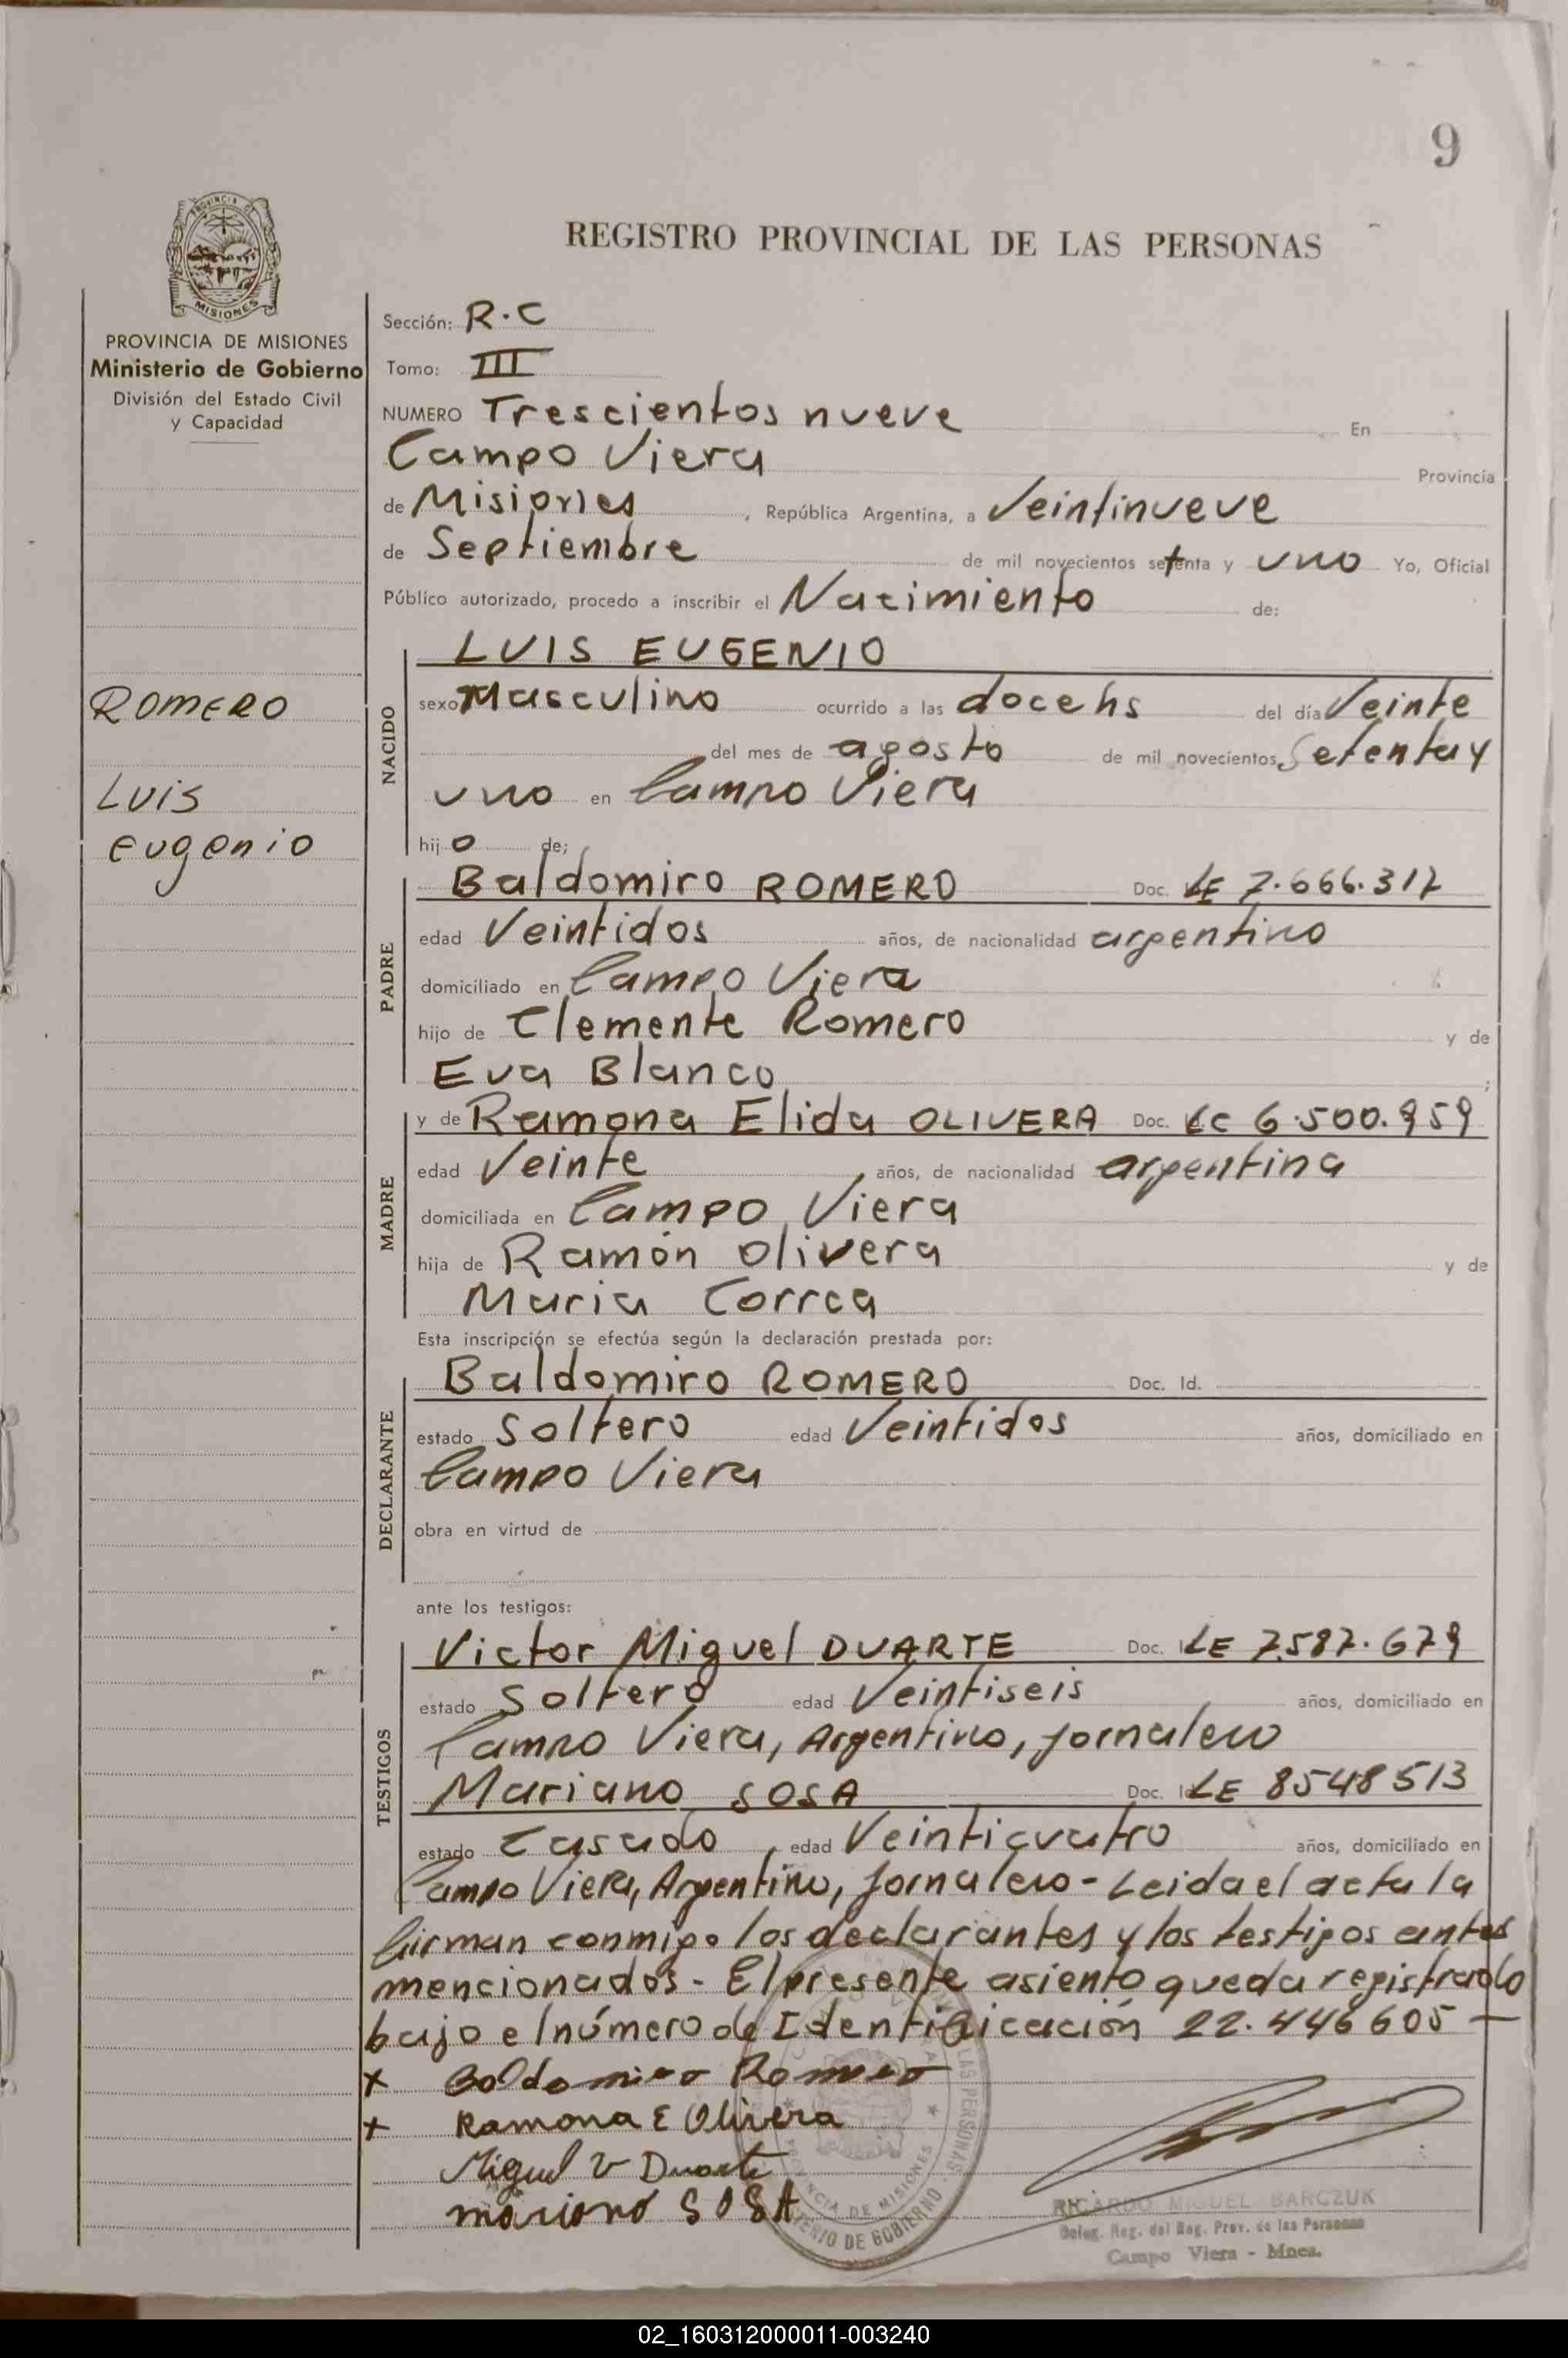 9
PROVINCIA DE
MISIONES
REGISTRO PROVINCIAL DE LAS PERSONAS
PROVINCIA DE MISIONES
Ministerio de Gobierno
División del Estado Civil
y Capacidad
ROMERO
Luis
Eugenio
Sección: R.C
Tomo: III
NUMERO Trescientos nueve En
Campo Viera Provincia
de Misiones, República Argentina, a Veintinueve
de Septiembre de mil novecientos setenta y uno Yo, Oficial
Público autorizado, procedo a inscribir el Nacimiento de:
NACIDO
LUIS EUGENIO
sexo Masculino ocurrido a las doce hs del día Veinte
del mes de agosto de mil novecientos Setenta y
uno en Campo Viera
hijo de;
PADRE
Baldomiro ROMERO Doc. LE 7.666.317
edad Veintidos años, de nacionalidad argentino
domiciliado en Campo Viera
hijo de Clemente Romero y de
Eva Blanco ;
MADRE
y de Ramona Elida OLIVERA Doc. LC 6.500.959
edad Veinte, años, de nacionalidad argentina
domiciliada en Campo Viera
hija de Ramón Olivera y de
Maria Correa
Esta inscripción se efectúa según la declaración prestada por:
DECLARANTE
Baldomiro ROMERO Doc. Id.
estado Soltero edad Veintidos años, domiciliado en
Campo Viera
obra en virtud de
ante los testigos:
TESTIGOS
Victor Miguel DUARTE Doc. LE 7.587.679
estado Soltero edad Veintiseis, años, domiciliado en
Campo Viera, Argentino, jornalero
Mariano SOSA Doc. Id LE 8548513
estado Casado, edad Veinticuatro años, domiciliado en
Campo Viera, Argentino, jornalero - Leida el acta la
firman conmigo los declarantes y los testigos antes
mencionados - El presente asiento queda registrado
bajo el número de Identificación 22.446605 —
x Baldomiro Romero
x Ramona E Olivera
Miguel V Duarte
mariano SOSA
LAS PERSONAS
PROVINCIA DE MISIONES
MINISTERIO DE GOBIERNO
RICARDO MIGUEL BARCZUK
Deleg. Reg. del Reg. Prov. de las Personas
Campo Viera - Mnes.
02_160312000011-003240